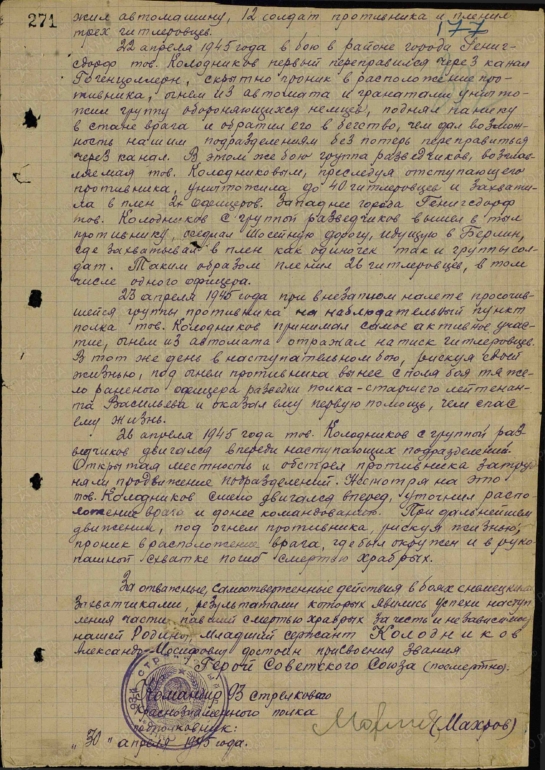 271
177
жил автомашину, 12 солдат противника и пленил
трех гитлеровцев.
22 апреля 1945 года в бою в районе города Гениг-
сдорф тов. Колодников первый переправился через канал
Гогенцоллерн, скрытно проник в расположение про-
тивника, огнем из автомата и гранатами уничто-
жил группу обороняющихся немцев, поднял панику
в стане врага и обратил его в бегство, чем дал возмож-
ность нашим подразделениям без потерь переправиться
через канал. В этом же бою группа разведчиков, возглав-
ляемая тов. Колодниковым, преследуя отступающего
противника, уничтожила до 40 гитлеровцев и захвати-
ла в плен 2х офицеров. Западнее города Генигсдорф
тов. Колодников с группой разведчиков вышел в тыл
противнику, оседлал шоссейную дорогу, идущую в Берлин,
где захватывал в плен как одиночек так и группы сол-
дат. Таким образом пленил 26 гитлеровцев, в том
числе одного офицера.
23 апреля 1945 года при внезапном налете просочив-
шейся группы противника на наблюдательный пункт
полка тов. Колодников принимал самое активное учас-
тие, огнем из автомата отражал натиск гитлеровцев.
В тот же день в наступательном бою, рискуя своей
жизнью, под огнем противника вынес с поля боя тяже-
ло раненого офицера разведки полка-старшего лейтенан-
та Васильева и оказал ему первую помощь, чем спас
ему жизнь.
26 апреля 1945 года тов. Колодников с группой раз-
ведчиков двигался впереди наступающих подразделений.
Открытая местность и обстрел противника затруд-
няли продвижение подразделений. Несмотря на это
тов. Колодников смело двигался вперед, уточнил распо-
ложение врага и донес командованию. При дальнейшем
движении, под огнем противника, рискуя жизнью,
проник в расположение врага, где был окружен и в руко-
пашной схватке погиб смертью храбрых.
За отважные, самоотверженные действия в боях с немецкими
захватчиками, результатами которых явились успехи наступ-
ления части, павший смертью храбрых за честь и независимость
нашей Родины, младший сержант Колодников
Александр Иосифович достоин присвоения звания
Герой Советского Союза (посмертно).
Командир 93 стрелкового
краснознаменного полка
подполковник:
(Махров)
"30" апреля 1945 года.